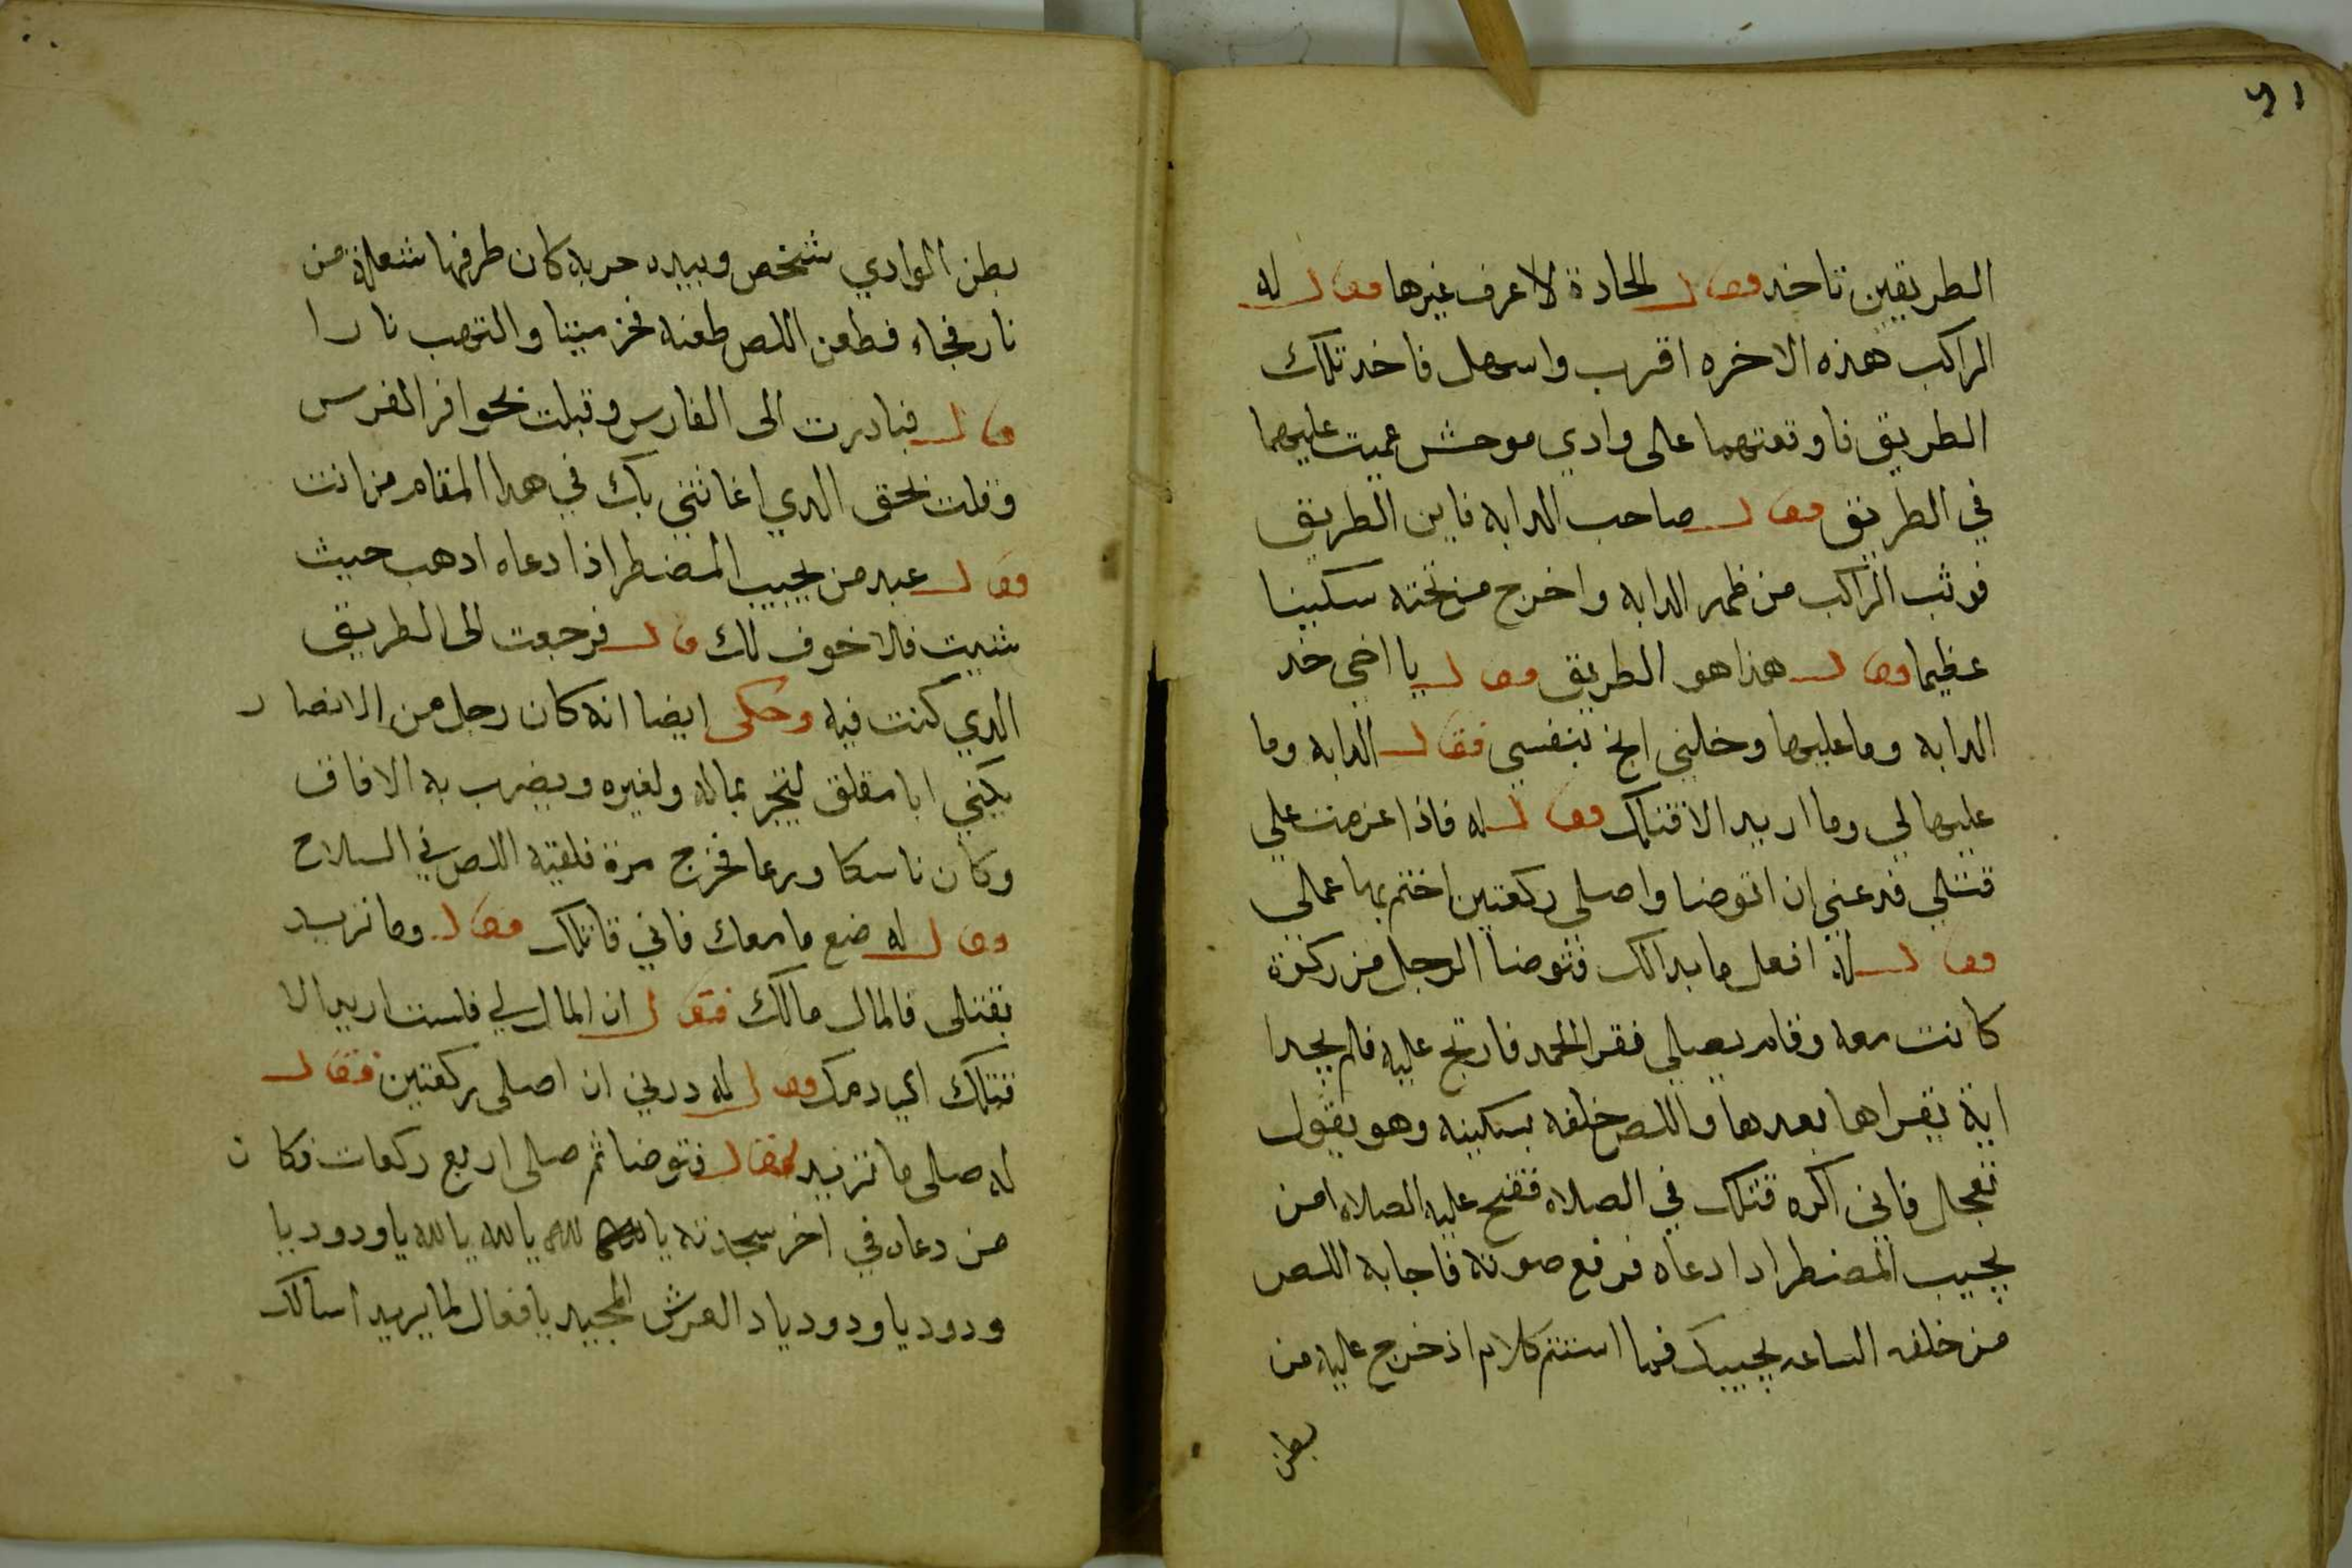 الطريقين تاخد فقال الجادة لا عرف غيرها فقال له
الراكب هذه الاخره اقرب واسهل فاخد تلك
الطريق فاوقعتهما على وادي موحش عميت عليهما
في الطريق فقال صاحب الدابه فاين الطريق
فوثب الراكب من ظهر الدابه واخرج من تحته سكينا
عظيما وقال هذا هو الطريق فقال يا اخي خد
الدابه وما عليها وخليني انج بنفسي فقال الدابه وما
عليها لي وما اريد الا قتلك فقال له فاذا عزمت علي
قتلي فدعني ان اتوضا واصلي ركعتين اختم بها عملي
فقال له افعل ما بدالك فتوضا الرجل من ركوة
كانت معه وقام يصلي فقرا الحمد فارتج عليه فلم يجدا
اية يقراها بعدها واللص خلفه بسكينه وهو يقول
تعجل فاني اكره قتلك في الصلاه ففتح عليه الصلاه امن
يجيب المضطر ادا دعاه فرفع صوته فاجابه اللص
من خلفه الساعه يجيبك فما استتم كلام اذ خرج عليه من
بطن
بطن الوادي شخص وبيده حربه كان طرفها شعلة من
نار فجاء فطعن اللص طعنه فخر ميتا والتهب نارا
قال فبادرت الى الفارس وقبلت بحوافر الفرس
وقلت بحق الدي اغاثني بك في هدا المقام من انت
فقال عبد من يجيب المضطر اذا دعاه ادهب حيث
شئت فلا خوف لك قال فرجعت الى الطريق
الدي كنت فيه وحكى ايضا انه كان رجل من الانصار
يكني ابا مقلق يتجر بماله ولغيره ويضرب به الافاق
وكان ناسكا ورعا فخرج مرة فلقيه اللص في السلاح
فقال له ضع ما معك فاني قاتلك فقال وما تريد
بقتلى فالمال مالك فقال ان المال لي فلست اريد الا
قتلك اي دمك فقال له درني ان اصلى ركعتين فقال
له صلى ما تريد فقال فتوضا ثم صلى اربع ركعات فكان
من دعاه في اخر سجدته يا الله يا الله يا الله يا ودود يا
ودود يا ودود يا د العرش المجيد يا فعال لما يريد اسالك